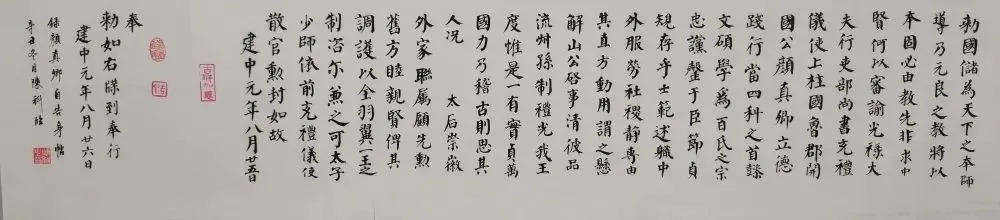 勑國儲為天下之本師
導乃元良之教將以
本固必由教先非求中
賢何以審諭光祿大
夫行吏部尚書充禮
儀使上柱國魯郡開
國公顏真卿立德
踐行當四科之首懿
文碩學爲百氏之宗
忠讜罄于臣節貞
規存乎士範述職中
外服勞社稷靜專由
其直方動用謂之懸
解山公啓事清彼品
流叔孫制禮光我王
度惟是一有實貞萬
國力乃稽古則思其
人況 太后崇徽
外家聯属顧先勲
舊方睦親賢俾其
調護以全羽翼一王之
制咨尓兼之可太子
少師依前充禮儀使
散官勳封如故
建中元年八月廿五日
吉祥如意
奉
勑如右牒到奉行
建中元年八月廿六日
錄顏真卿自告身帖
辛丑冬月陳利臨